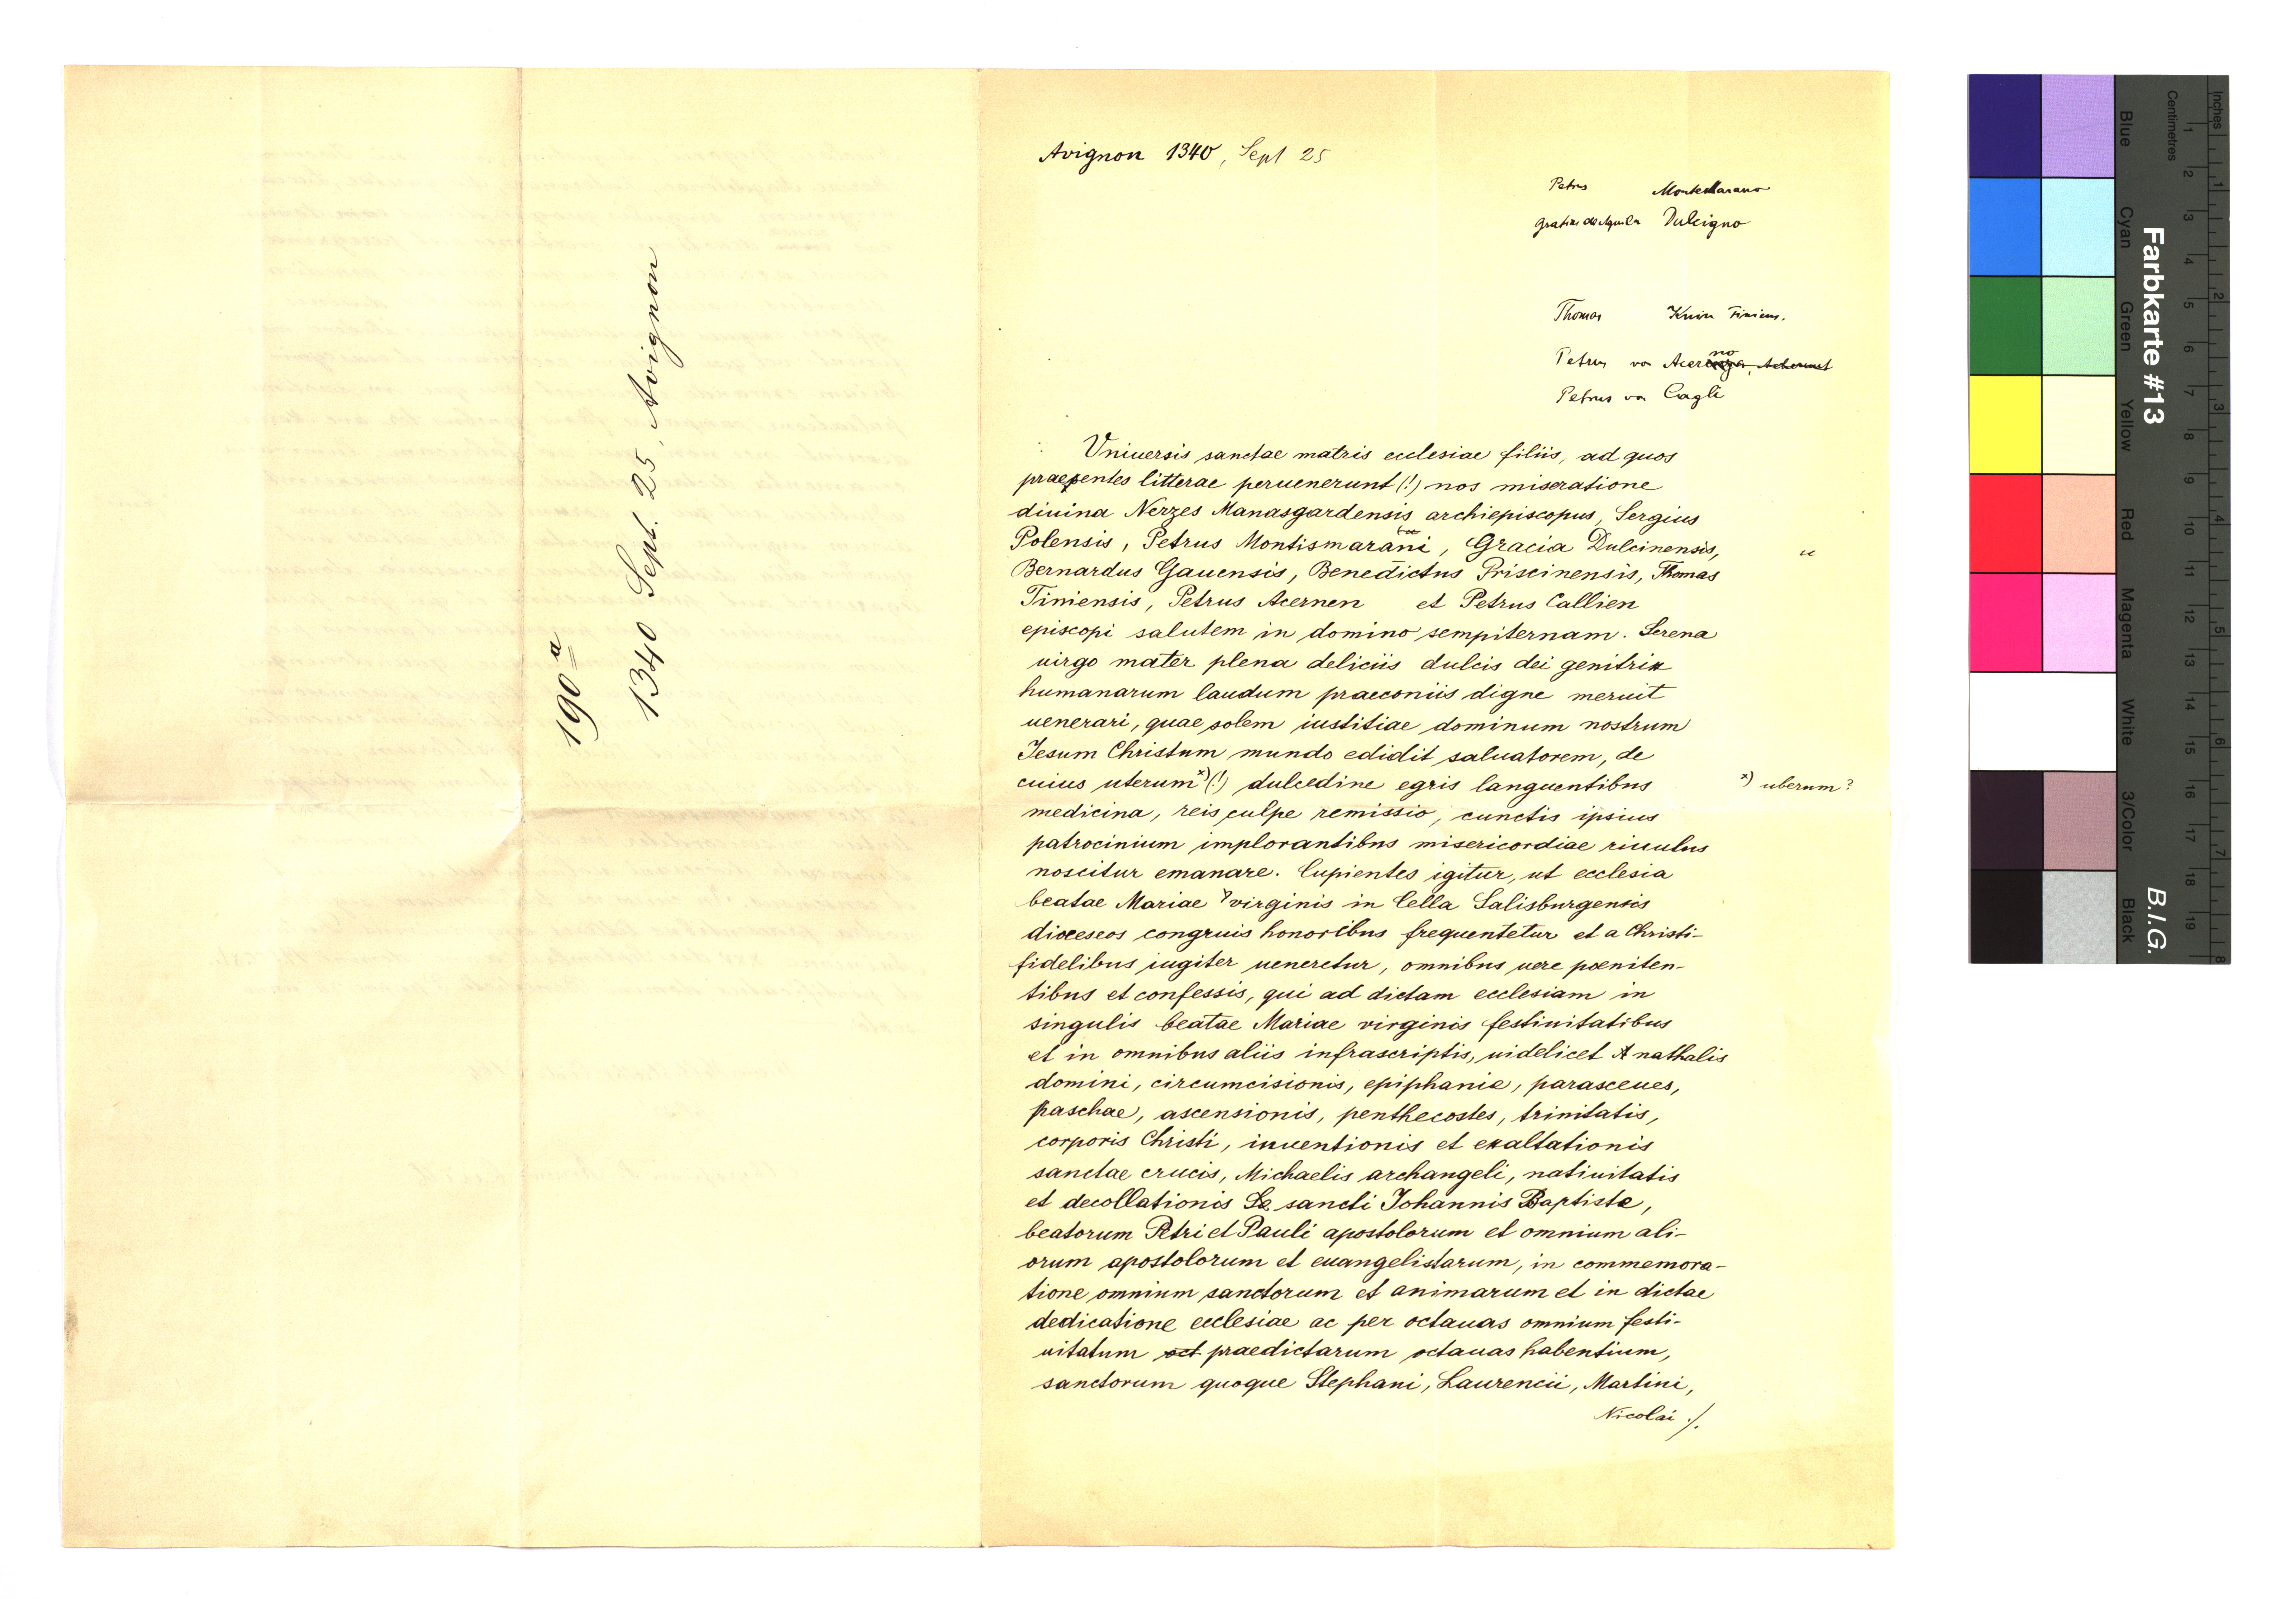 190a
1340 Sept. 25, Avignon
Avignon 1340, Sept 25
Petrus Montemarano
Gratia de Aquila Dulcigno
Thomas Knin Tiniens.
Petrus von Acerno
Petrus von Cagli
Vniuersis sanctae matris ecclesiae filiis, ad quos
praesentes litterae peruenerunt (!) nos miseratione
diuina Nerzes Manasgardensis archiepiscopus, Sergius
Polensis, Petrus Montismarani, Gracia Dulcinensis,
Bernardus Gauensis, Benedictus Priscinensis, Thomas
Tiniensis, Petrus Acernen et Petrus Callien
episcopi salutem in domino sempiternam. Serena
uirgo mater plena deliciis dulcis dei genitrix
humanarum laudum praeconiis digne meruit
uenerari, quae solem iustitiae dominum nostrum
Jesum Christum mundo edidit saluatorem, de
cuius uterum x) (!) dulcedine egris languentibus
x) uberum?
medicina, reis culpe remissio, cunctis ipsius
patrocinium implorantibus misericordiae riuulus
noscitur emanare. Cupientes igitur, ut ecclesia
beatae Mariae virginis in Cella Salisburgensis
dioceseos congruis honoribus frequentetur et a Christi-
fidelibus iugiter ueneretur, omnibus uere poeniten-
tibus et confessis, qui ad dictam ecclesiam in
singulis beatae Mariae virginis festiuitatibus
et in omnibus aliis infrascriptis, uidelicet nathalis
domini, circumcisionis, epiphanie, parasceues,
paschae, ascensionis, penthecostes, trinitatis,
corporis Christi, inuentionis et exaltationis
sanctae crucis, Michaelis archangeli, natiuitatis
et decollationis sancti Johannis Baptiste,
beatorum Petri et Pauli apostolorum et omnium ali-
orum apostolorum et euangelistarum, in commemora-
tione omnium sanctorum et animarum et in dictae
dedicatione ecclesiae ac per octauas omnium festi-
uitatum oct praedictarum octauas habentium,
sanctorum quoque Stephani, Laurencii, Martini,
Nicolai ./.
Farbkarte #13
B.I.G.
Centimetres
Inches
Blue
Cyan
Green
Yellow
Red
Magenta
White
3/Color
Black
1 2 3 4 5 6 7 8 9 10 11 12 13 14 15 16 17 18 19
1 2 3 4 5 6 7 8